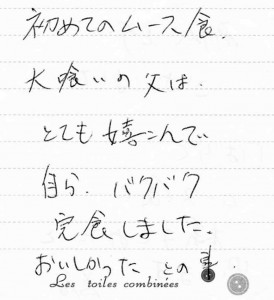 初めてのムース食.
大喰いの父は.
とても嬉こんで
自ら. バクバク
完食しました.
おいしかった との事.
Les toiles combinées